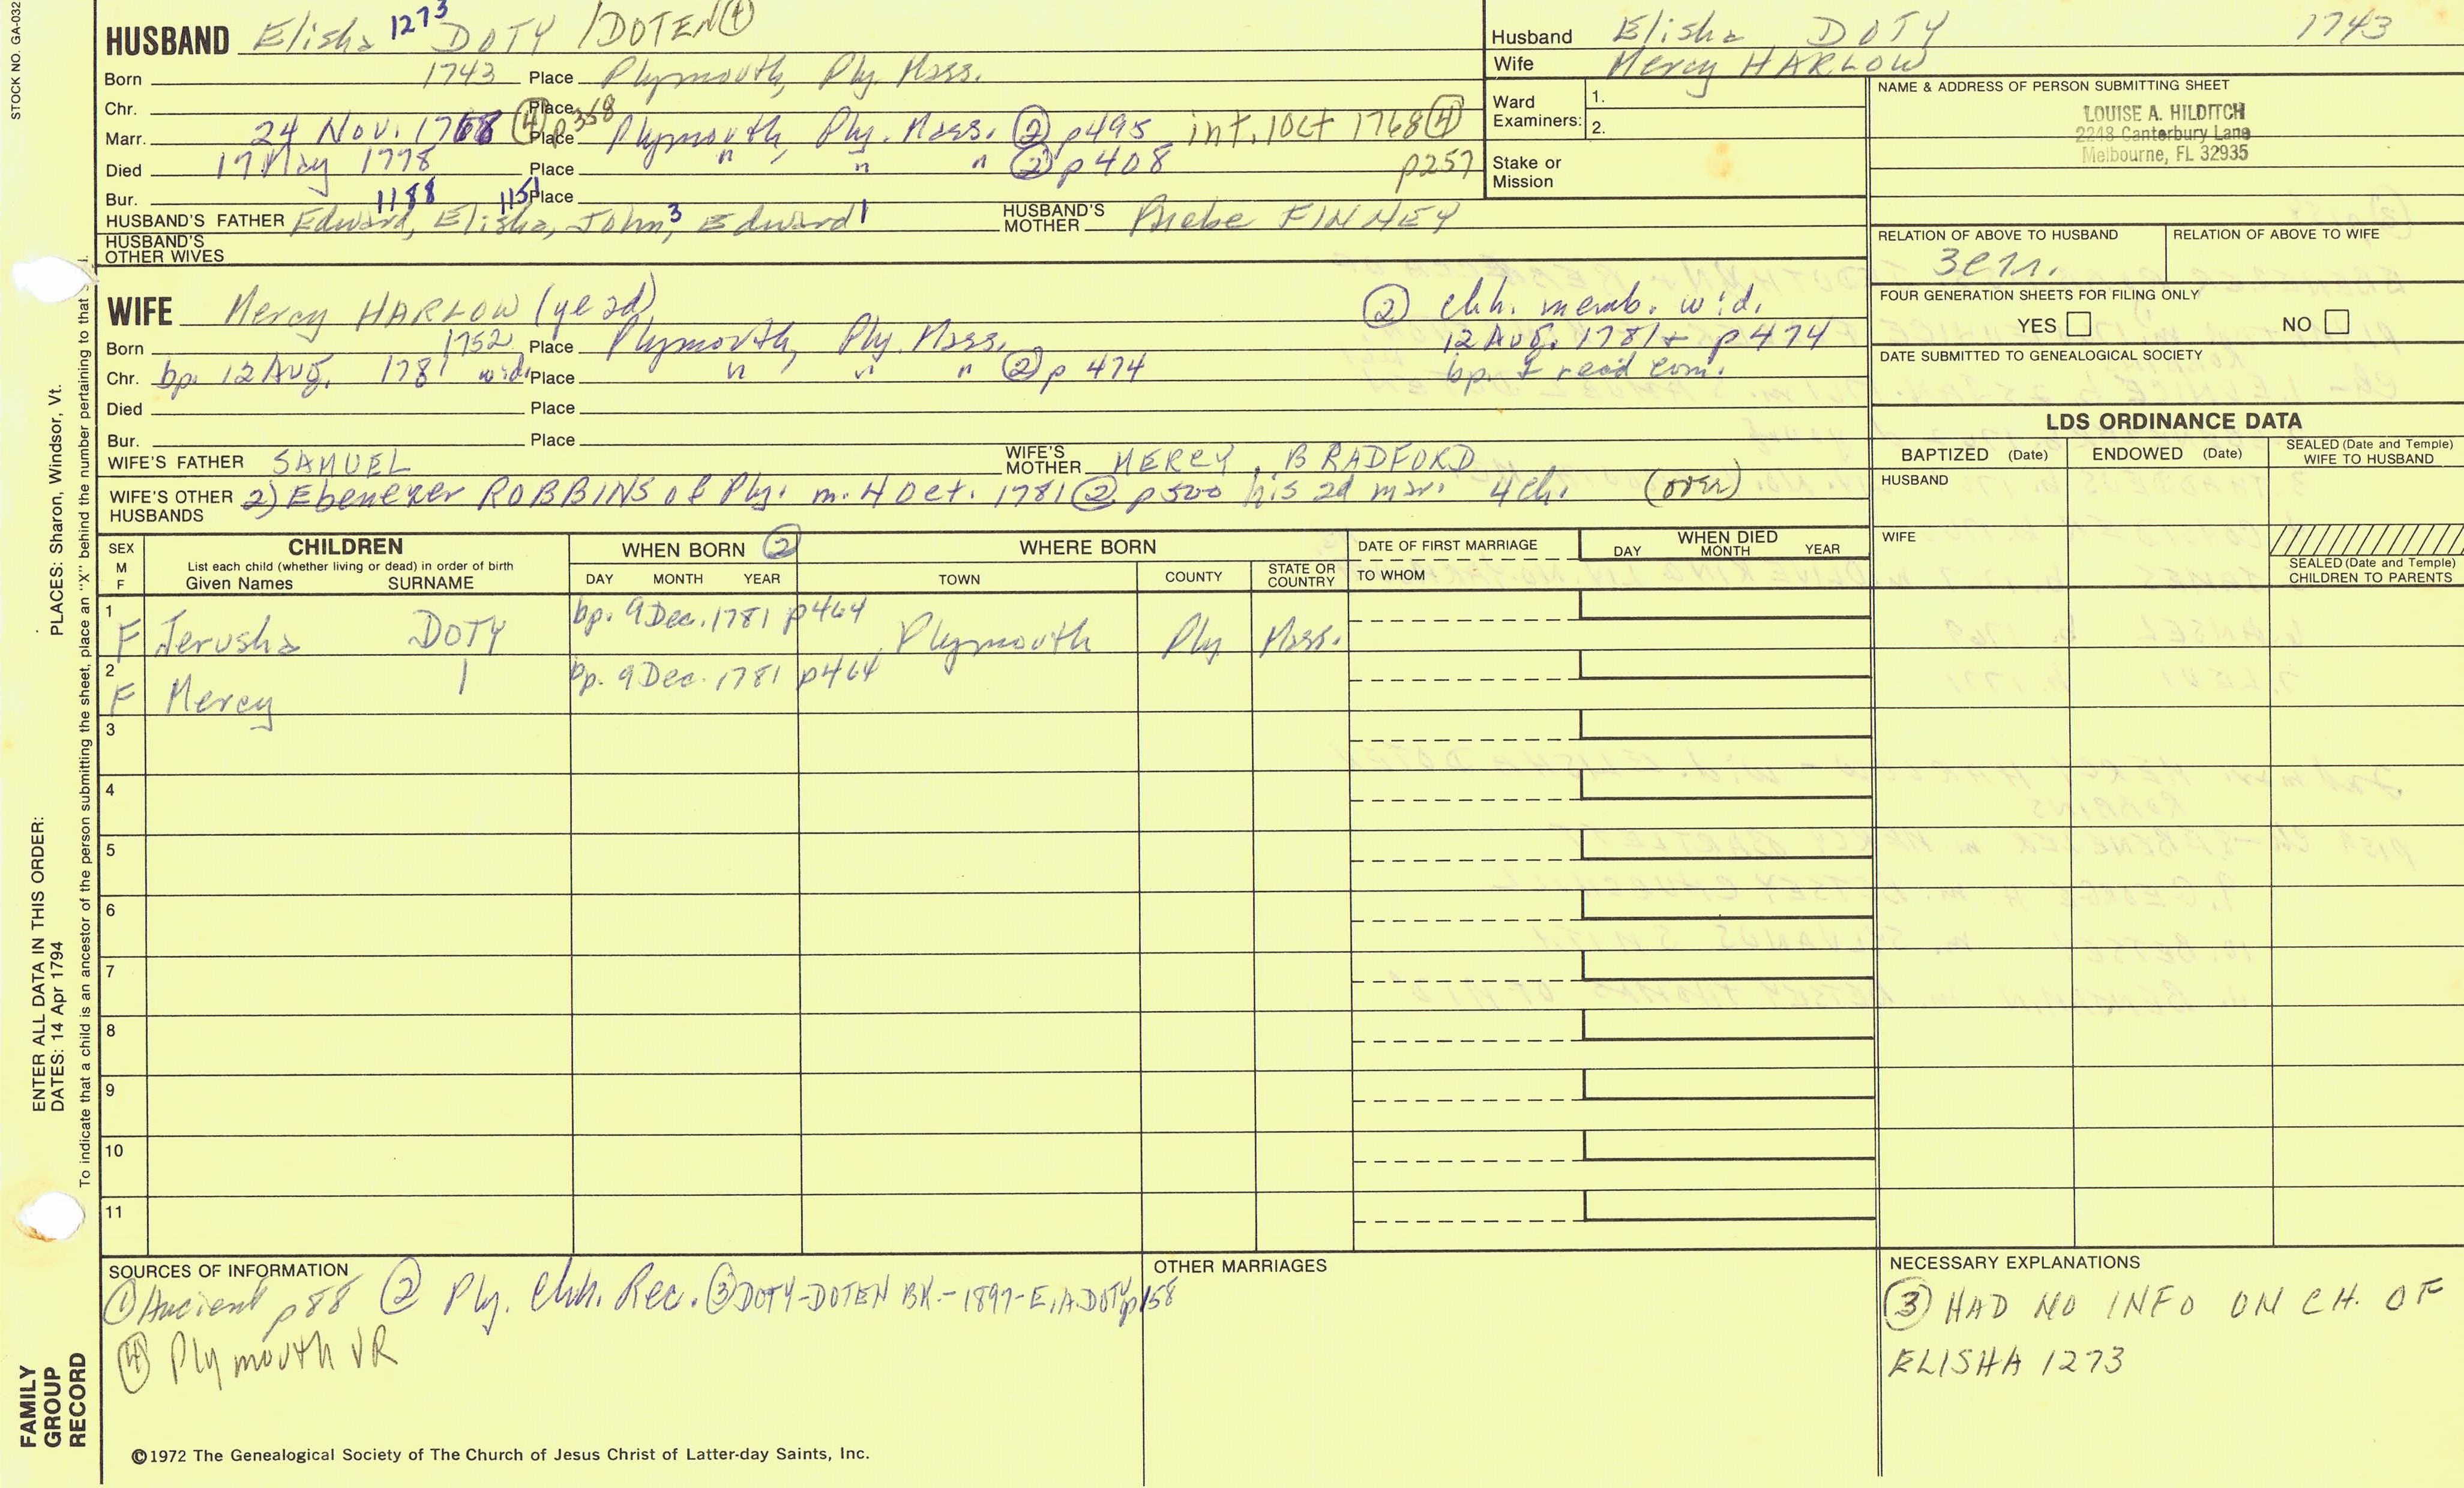 STOCK NO. GA-032
HUSBAND Elisha 1273 DOTY /DOTEN ④
Born 1743 Place Plymouth, Ply. Mass.
Chr. Place
Marr. 24 Nov. 1768 ④ p358 Place Plymouth, Ply. Mass. ② p495 int. 1 Oct 1768 ④ p257
Died 17 May 1778 Place " " " ② p408
Bur. Place
1188 1151
HUSBAND'S FATHER Edward, Elisha, John,3 Edward1 HUSBAND'S MOTHER Phebe FINNEY
HUSBAND'S OTHER WIVES
Husband Elisha DOTY 1743
Wife Mercy HARLOW
Ward Examiners: 1.
2.
Stake or Mission
NAME & ADDRESS OF PERSON SUBMITTING SHEET
LOUISE A. HILDITCH
2248 Canterbury Lane
Melbourne, FL 32935
RELATION OF ABOVE TO HUSBAND RELATION OF ABOVE TO WIFE
FOUR GENERATION SHEETS FOR FILING ONLY
YES NO
DATE SUBMITTED TO GENEALOGICAL SOCIETY
WIFE Mercy HARLOW (ye 2d)
② chh. memb. wid.
12 Aug. 1781 + p474
bp. & read com.
Born 1752 Place Plymouth, Ply. Mass.
Chr. bp. 12 Aug. 1781 wid. Place " " " ② p 474
Died Place
Bur. Place
WIFE'S FATHER SAMUEL WIFE'S MOTHER MERCY BRADFORD
WIFE'S OTHER HUSBANDS 2) Ebenezer ROBBINS of Ply. m. 4 Oct. 1781 ② p500 his 2d mar. 4 ch. (over)
LDS ORDINANCE DATA
BAPTIZED (Date) ENDOWED (Date) SEALED (Date and Temple) WIFE TO HUSBAND
HUSBAND
WIFE
SEALED (Date and Temple) CHILDREN TO PARENTS
SEX M F
CHILDREN
List each child (whether living or dead) in order of birth
Given Names SURNAME
WHEN BORN ②
DAY MONTH YEAR
WHERE BORN
TOWN COUNTY STATE OR COUNTRY
DATE OF FIRST MARRIAGE
TO WHOM
WHEN DIED
DAY MONTH YEAR
1 F Jerusha DOTY bp. 9 Dec. 1781 p464 Plymouth Ply Mass.
2 F Mercy bp. 9 Dec. 1781 p464
3
4
5
6
7
8
9
10
11
SOURCES OF INFORMATION
① Ancient p88 ② Ply. Chh. Rec. ③ DOTY-DOTEN BK.-1897-E.A.DOTY p158
④ Plymouth VR
OTHER MARRIAGES
NECESSARY EXPLANATIONS
③ HAD NO INFO ON CH. OF
ELISHA 1273
©1972 The Genealogical Society of The Church of Jesus Christ of Latter-day Saints, Inc.
FAMILY
GROUP
RECORD
ENTER ALL DATA IN THIS ORDER:
DATES: 14 Apr 1794
PLACES: Sharon, Windsor, Vt.
To indicate that a child is an ancestor of the person submitting the sheet, place an "X" behind the number pertaining to that